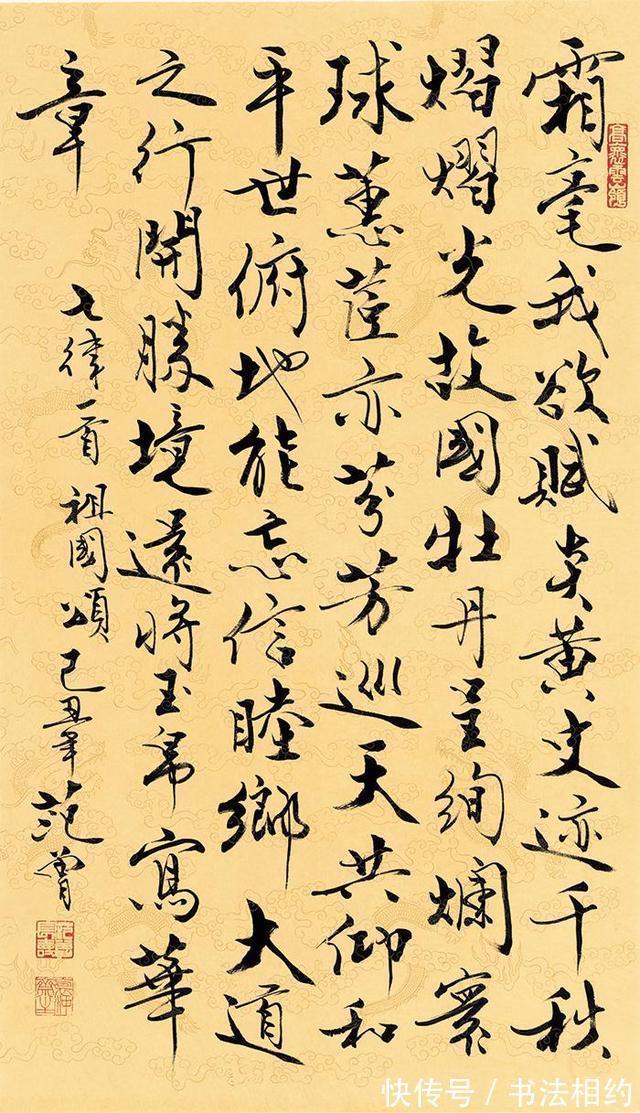 霜毫我欲賦炎黄史迹千秋
熠熠光故國牡丹呈絢爛寰
球蕙茝亦芬芳巡天共仰和
平世俯地能忘信睦鄉大道
之行開勝境還將玉帛寫華
章
七律一首祖國頌己丑年范曾
快传号 / 书法相约